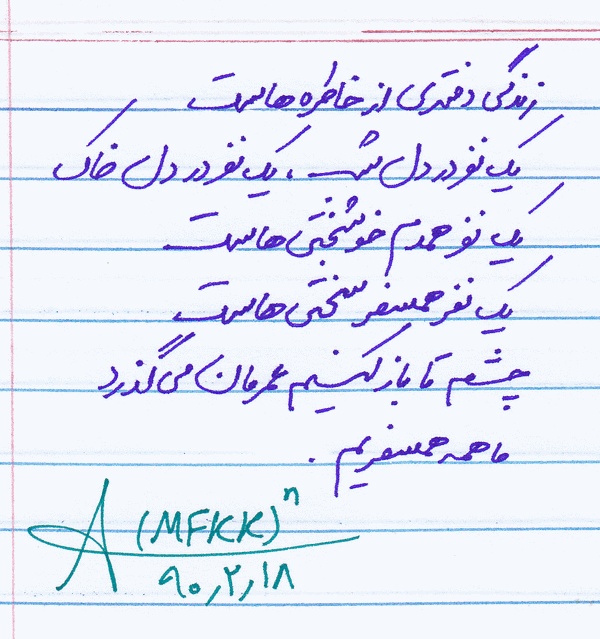 زندگی دفتری از خاطره هاست
یک نفر در دل شب ، یک نفر در دل خاک
یک نفر همدم خوشبختی هاست
یک نفر همسفر سختی هاست
چشم تا باز کنیم عمرمان می گذرد
ما همه همسفریم .
A (MFKK)ⁿ
۹۰٫۲٫۱۸